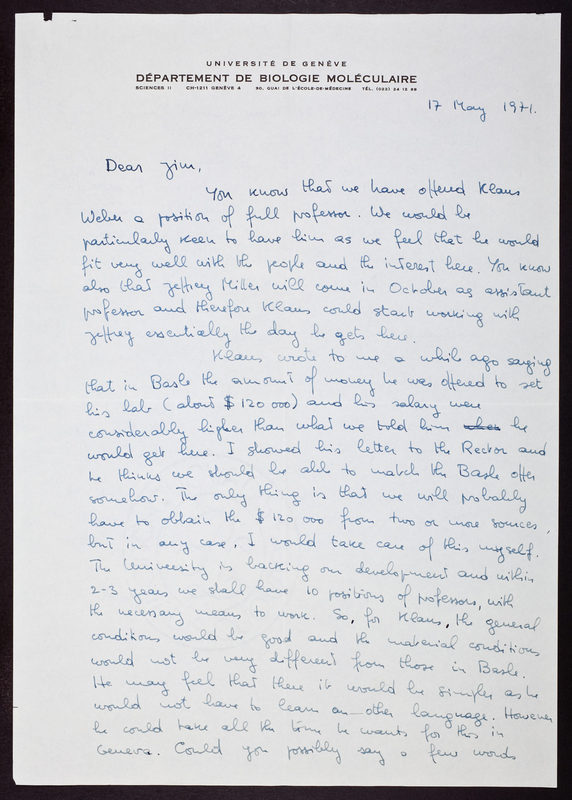 UNIVERSITÉ DE GENÈVE
DÉPARTEMENT DE BIOLOGIE MOLÉCULAIRE
SCIENCES II CH-1211 GENÈVE 4 30, QUAI DE L'ÉCOLE-DE-MÉDECINE TÉL. (022)
17 May 1971.
Dear Jim,
You know that we have offered Klaus
Weber a position of full professor. We would be
particularly keen to have him as we feel that he would
fit very well with the people and the interest here. You know
also that Jeffrey Miller will come in October as assistant
professor and therefore Klaus could start working with
Jeffrey essentially the day he gets here.
Klaus wrote to me a while ago saying
that in Basle the amount of money he was offered to set
his lab (about $ 120 000) and his salary were
considerably higher than what we told him he
would get here. I showed his letter to the Rector and
he thinks we should be able to match the Basle offer
somehow. The only thing is that we will probably
have to obtain the $ 120 000 from two or more sources,
but in any case, I would take care of this myself.
The University is backing our development and within
2-3 years we shall have 10 positions of professors, with
the necessary means to work. So, for Klaus, the general
conditions would be good and the material conditions
would not be very different from those in Basle.
He may feel that there it would be simpler as he
would not have to learn an-other language. However
he could take all the time he wants for this in
Geneva. Could you possibly say a few words